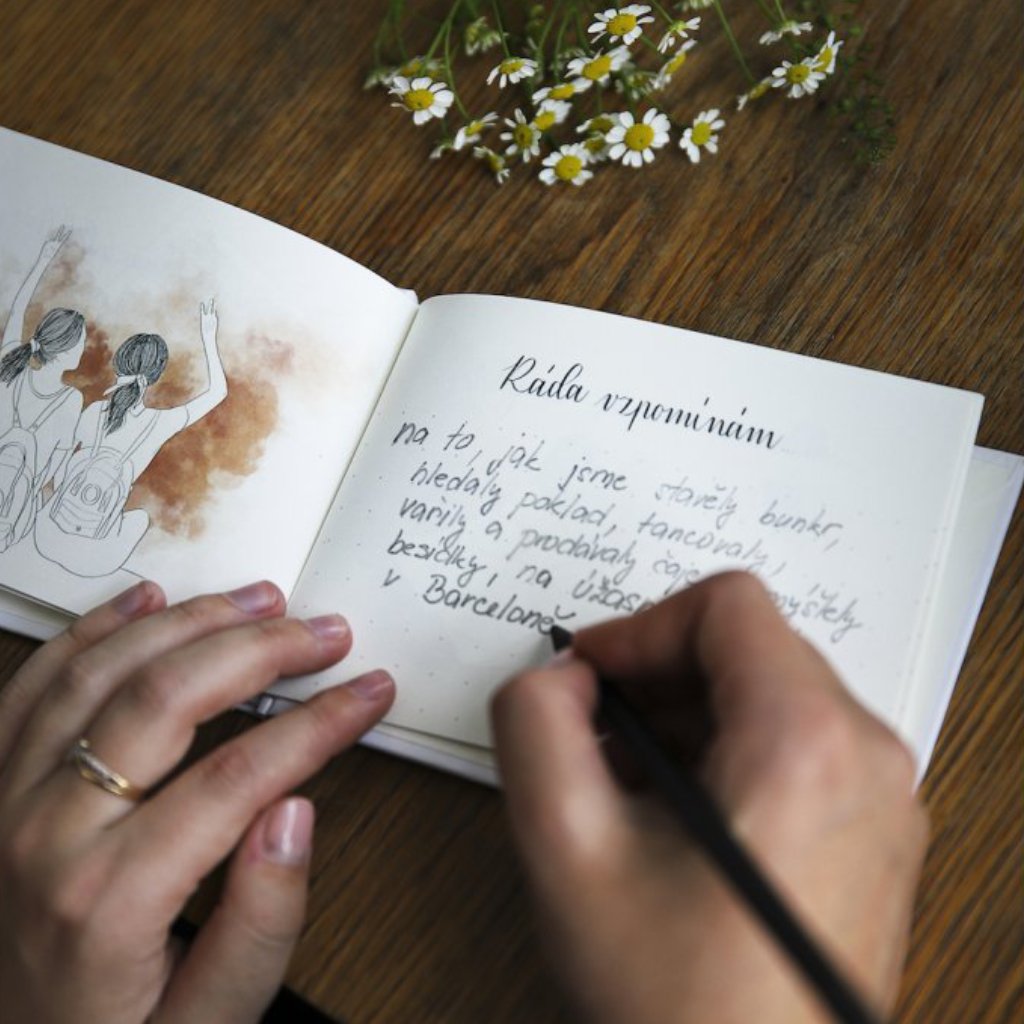 Ráda vzpomínám
na to, jak jsme stavěly bunkr,
hledaly poklad, tancovaly,
vařily a prodávaly čaje
besídky, na
v Barceloně